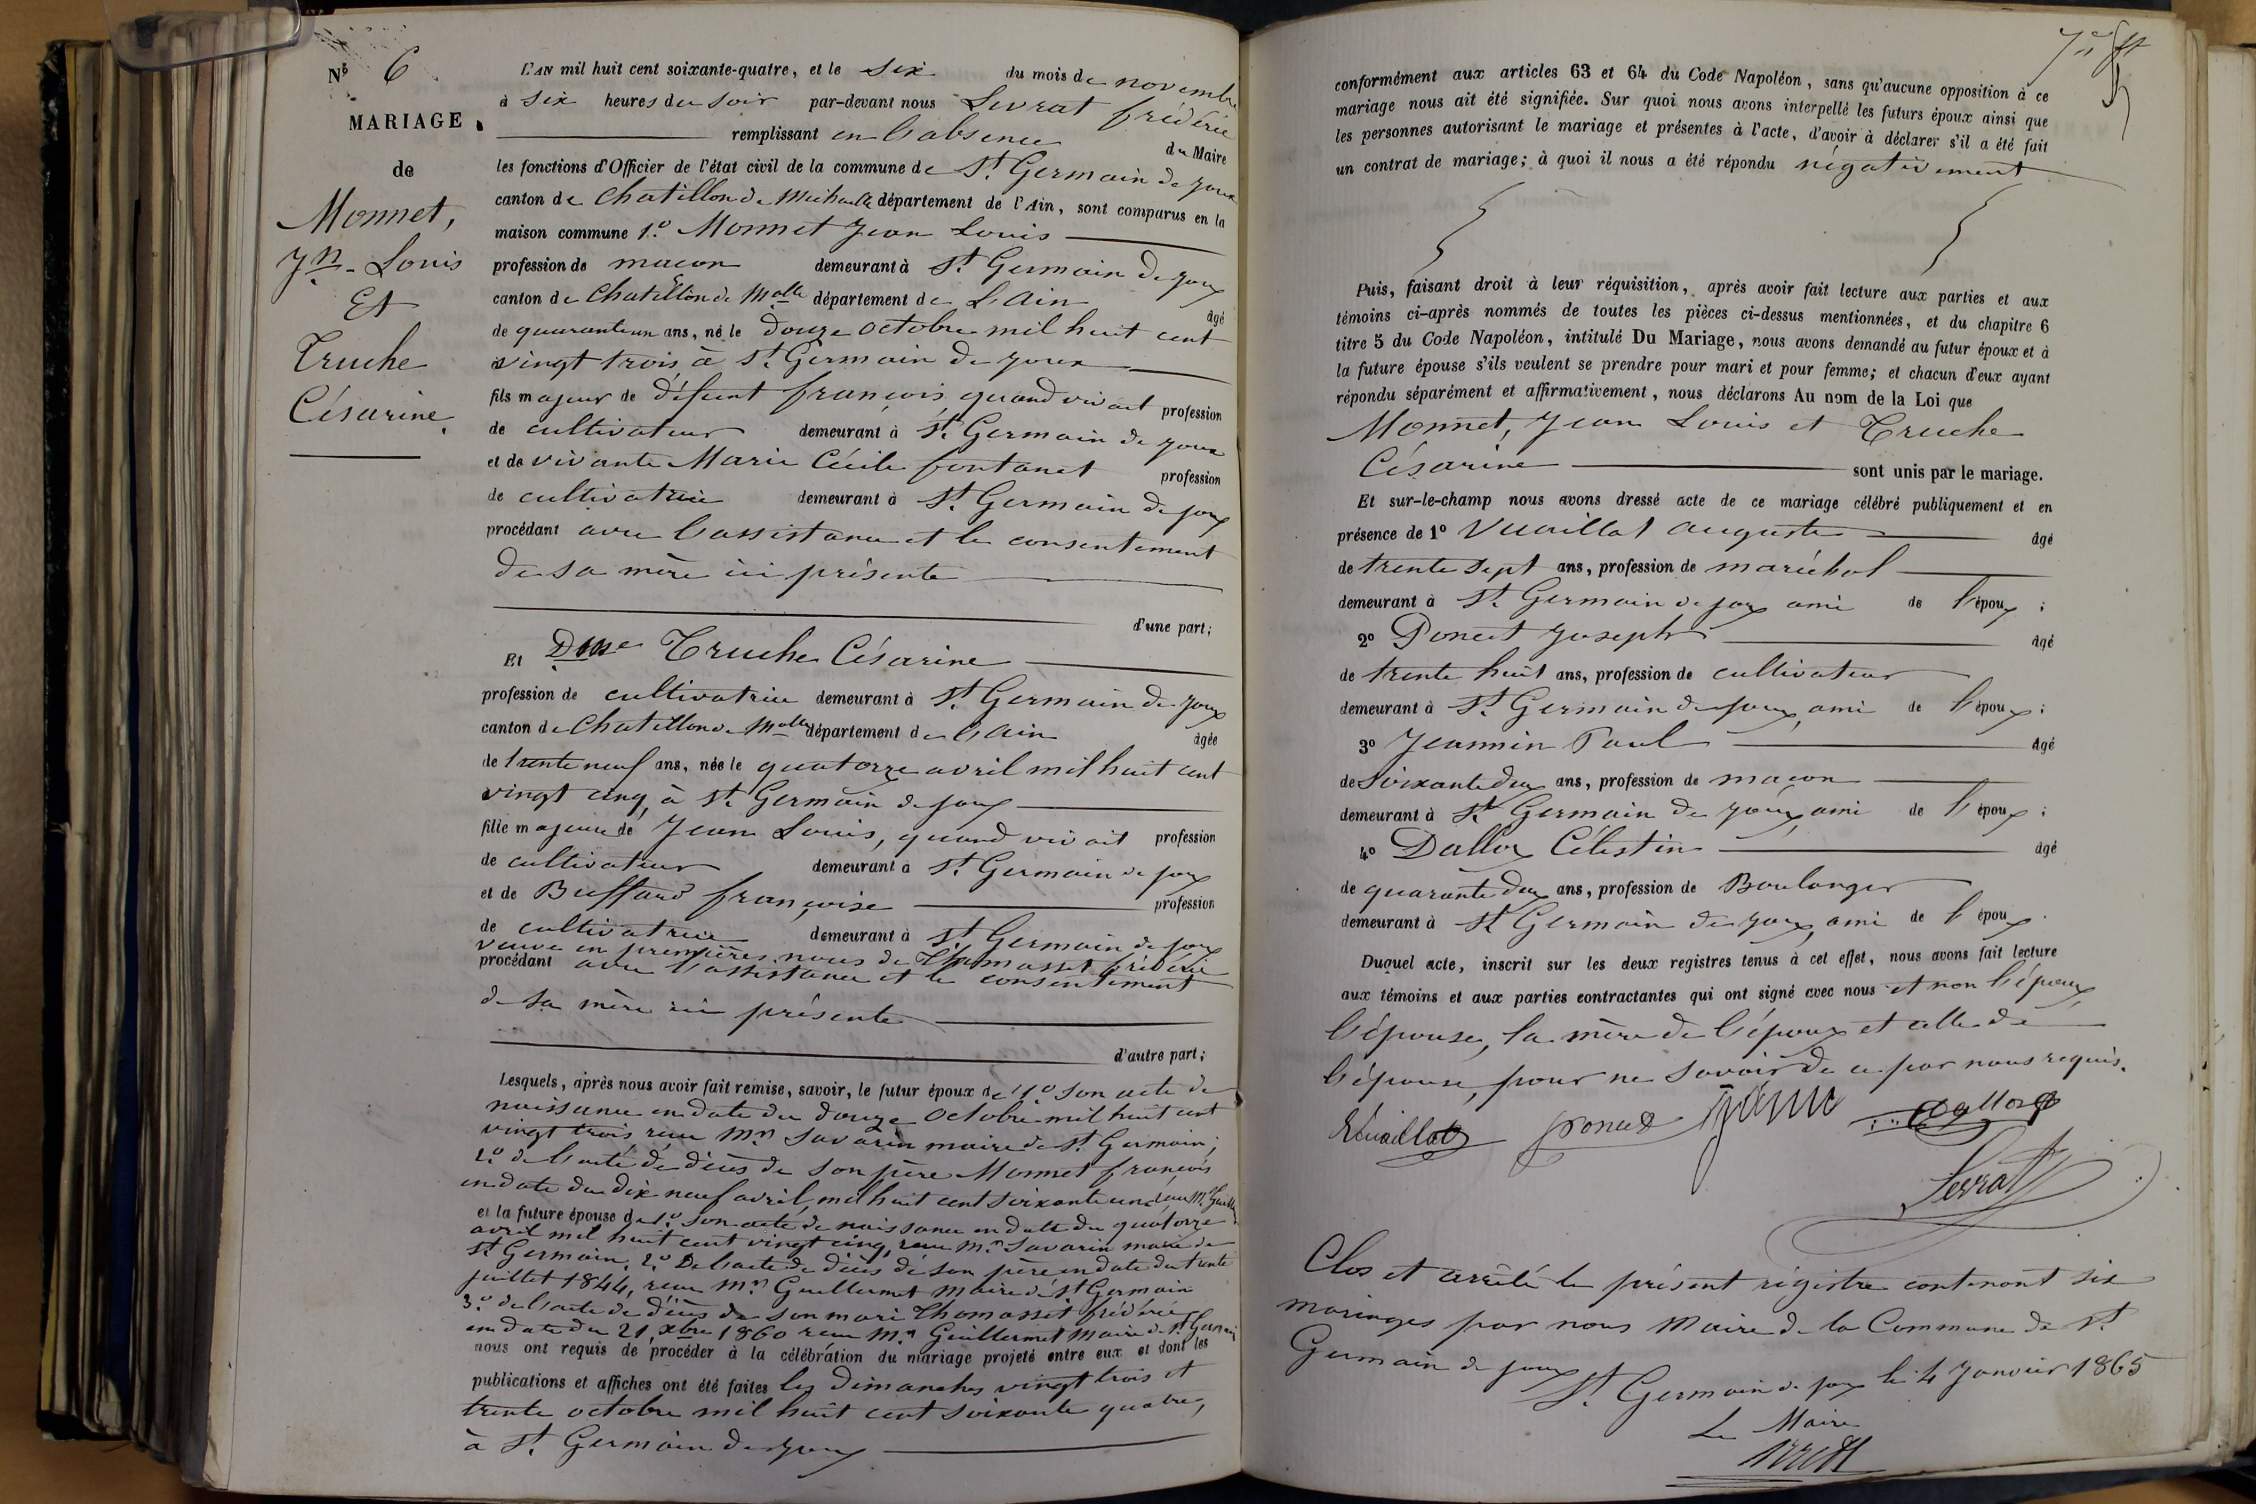 Nº 6
MARIAGE
de
Monnet,
Jn. Louis
Et
Truche
Césarine.
L'AN mil huit cent soixante-quatre, et le six du mois de novembre
à six heures du soir par-devant nous Levrat frédéric
remplissant en l'absence du Maire
les fonctions d'Officier de l'état civil de la commune de St. Germain de Joux
canton de Chatillon de Michaille département de l'Ain, sont comparus en la
maison commune 1.º Monnet Jean Louis
profession de maçon demeurant à St. Germain de Joux
canton de Chatillon de Malle département de L'Ain âgé
de quarante un ans, né le douze octobre mil huit cent
vingt trois, à St. Germain de Joux
fils majeur de défunt françois quand vivait profession
de cultivateur demeurant à St. Germain de Joux
et de vivante Marie Cécile fontanet profession
de cultivatrice demeurant à St. Germain de Joux
procédant avec l'assistance et le consentement
de sa mère ici présente
d'une part;
Et Dme Truche Césarine
profession de cultivatrice demeurant à St. Germain de Joux
canton de Chatillon de Malle département de l'Ain âgée
de trente neuf ans, née le quatorze avril mil huit cent
vingt cinq, à St. Germain de Joux
fille majeure de Jean Louis, quand vivait profession
de cultivateur demeurant à St. Germain de Joux
et de Buffard françoise profession
de cultivatrice demeurant à St. Germain de Joux
veuve en premières noces de Thomasset frédéric
procédant avec l'assistance et le consentement
de sa mère ici présente
d'autre part;
Lesquels, après nous avoir fait remise, savoir, le futur époux de 1.º son acte de
naissance en date du douze octobre mil huit cent
vingt trois, reçu Mr. Savarin maire de St. Germain;
2.º de l'acte de décès de son père Monnet françois
en date du dix neuf avril, mil huit cent soixante un, reçu Mr.
et la future épouse de 1.º son acte de naissance en date du quatorze
avril mil huit cent vingt cinq, reçu Mr. Savarin maire de
St. Germain, 2.º De l'acte de décès de son père en date du trente
juillet 1844, reçu Mr. Guillermet Maire de St. Germain
3.º de l'acte de décès de son mari Thomasset frédéric
en date du 21 xbre 1860 reçu Mr. Guillermet Maire de St. Germain
nous ont requis de procéder à la célébration du mariage projeté entre eux et dont les
publications et affiches ont été faites les dimanches vingt trois et
trente octobre mil huit cent soixante quatre,
à St. Germain de Joux
conformément aux articles 63 et 64 du Code Napoléon, sans qu'aucune opposition à ce
mariage nous ait été signifiée. Sur quoi nous avons interpellé les futurs époux ainsi que
les personnes autorisant le mariage et présentes à l'acte, d'avoir à déclarer s'il a été fait
un contrat de mariage; à quoi il nous a été répondu négativement
Puis, faisant droit à leur réquisition, après avoir fait lecture aux parties et aux
témoins ci-après nommés de toutes les pièces ci-dessus mentionnées, et du chapitre 6
titre 5 du Code Napoléon, intitulé Du Mariage, nous avons demandé au futur époux et à
la future épouse s'ils veulent se prendre pour mari et pour femme; et chacun d'eux ayant
répondu séparément et affirmativement, nous déclarons Au nom de la Loi que
Monnet, Jean Louis et Truche
Césarine sont unis par le mariage.
Et sur-le-champ nous avons dressé acte de ce mariage célébré publiquement et en
présence de 1º Vuaillat auguste âgé
de trente sept ans, profession de maréchal
demeurant à St. Germain de Joux ami de l'époux;
2º Poncet Joseph âgé
de trente huit ans, profession de cultivateur
demeurant à St. Germain de Joux, ami de l'époux;
3º Jeannin Paul âgé
de soixante deux ans, profession de maçon
demeurant à St. Germain de Joux, ami de l'époux;
4º Dalloz Célestin âgé
de quarante deux ans, profession de Boulanger
demeurant à St Germain de Joux, ami de l'époux.
Duquel acte, inscrit sur les deux registres tenus à cet effet, nous avons fait lecture
aux témoins et aux parties contractantes qui ont signé avec nous et non l'époux,
l'épouse, la mère de l'époux et celle de
l'épouse, pour ne savoir de ce par nous requis.
Vuaillat Poncet Dalloz
Levrat
Clos et arrêté le présent régistre contenant six
mariages par nous Maire de la Commune de St.
Germain de Joux
St. Germain de Joux le 4 Janvier 1865
Le Maire